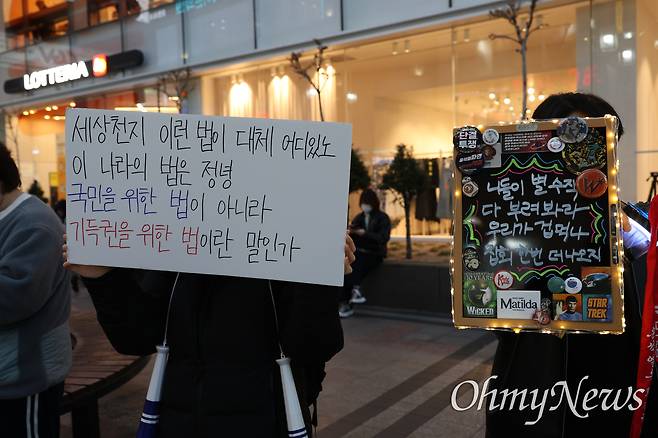 LOTTERIA
세상천지 이런 법이 대체 어디있노
이 나라의 법은 정녕
국민을 위한 법이 아니라
기득권을 위한 법이란 말인가
단결
투쟁
너들이 별 수작
다 부려봐라
우리가 겁먹나
집회 한번 더 나오지
WICKED
Matilda
STAR
TREK
OHMYNEWS